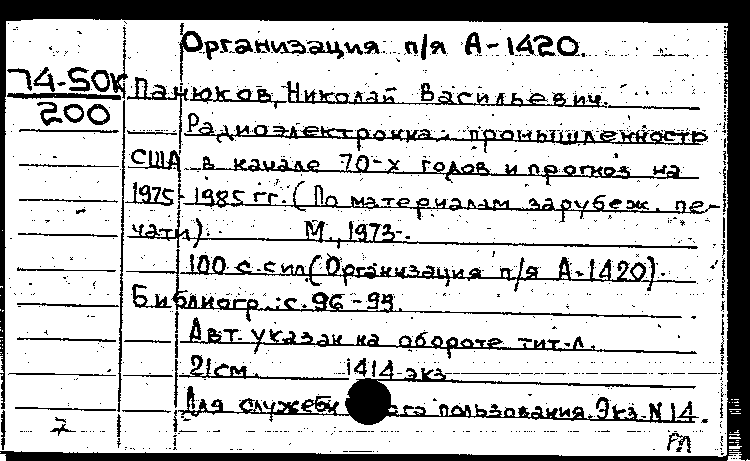 Организация п/я А-1420.
74-50К
200
Панюков, Николай Васильевич.
Радиоэлектронная промышленность
США в начале 70-х годов и прогноз на
1975-1985 гг. (По материалам зарубеж. пе-
чати). М., 1973.
100 с. с ил. (Организация п/я А-1420).
Библиогр.: с. 96-99.
Авт. указан на обороте тит. л.
21 см. 1414 экз.
Для служебн ого пользования. Экз. N 14.
7
РЛ